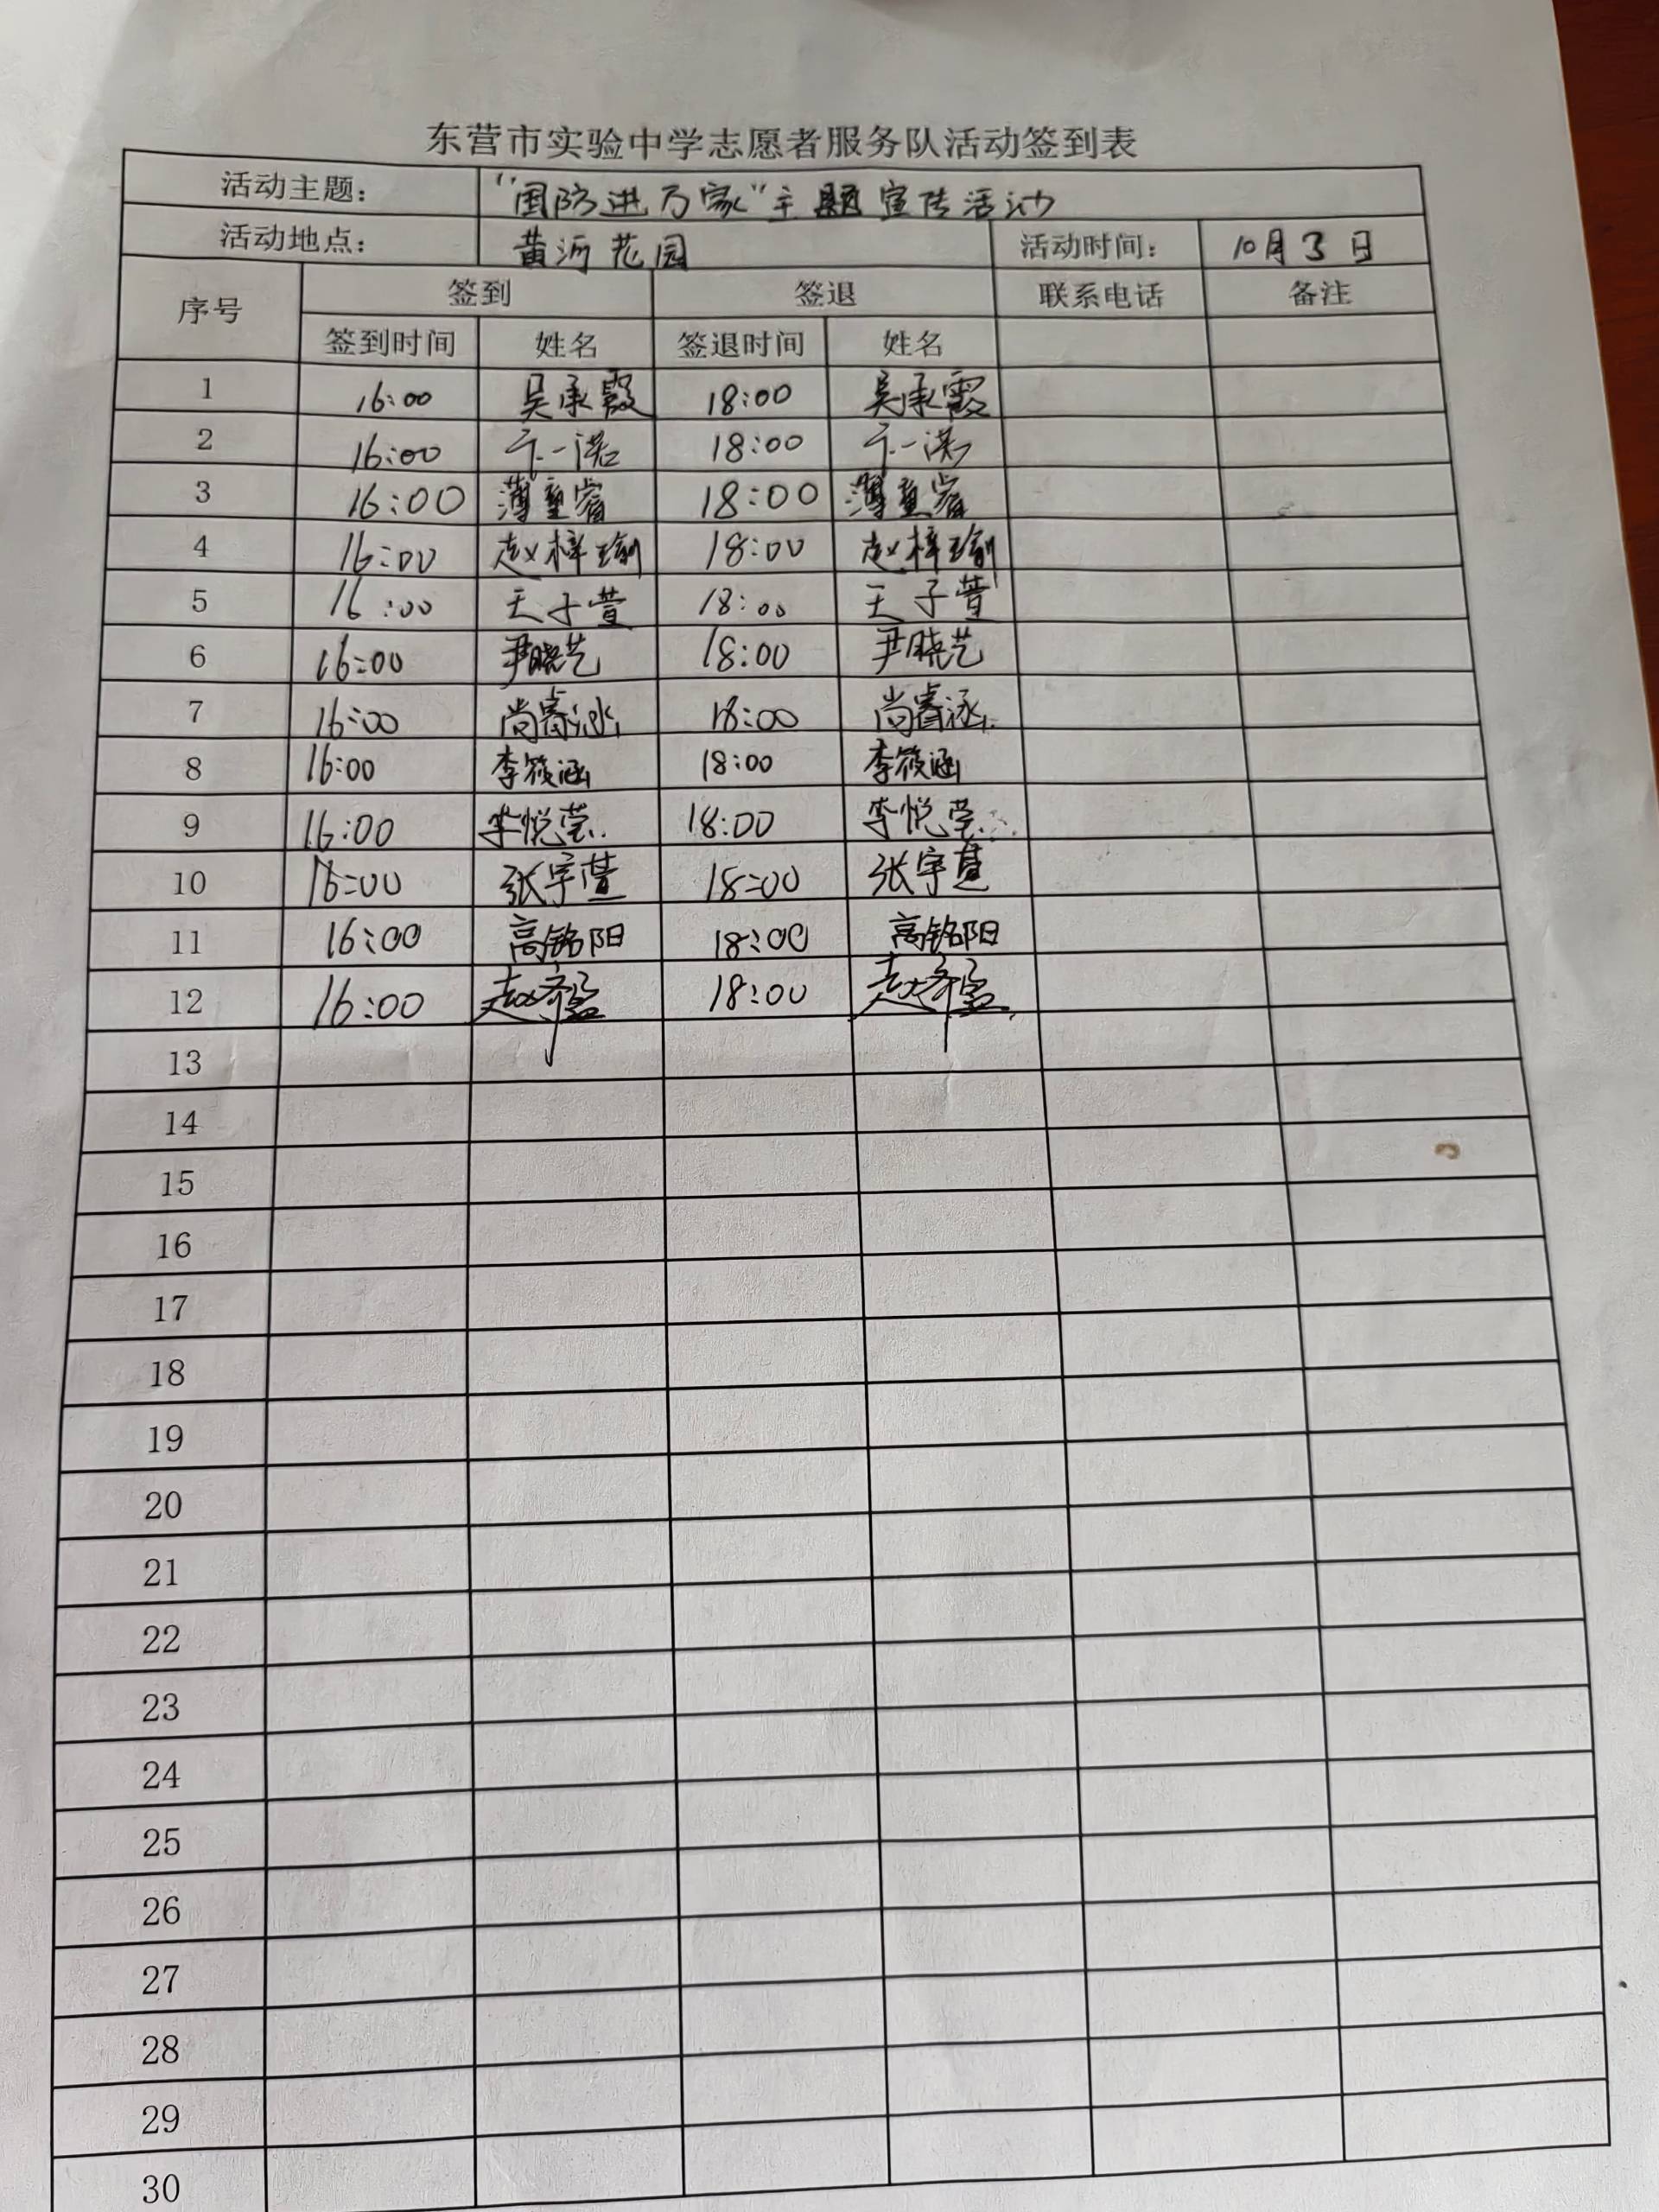 东营市实验中学志愿者服务队活动签到表
活动主题： "国防进万家"主题宣传活动
活动地点： 黄河花园 活动时间： 10月3日
序号 签到 签退 联系电话 备注
签到时间 姓名 签退时间 姓名
1 16:00 吴承霞 18:00 吴承霞
2 16:00 一诺 18:00 一诺
3 16:00 薄童睿 18:00 薄童睿
4 16:00 赵梓瑜 18:00 赵梓瑜
5 16:00 王子萱 18:00 王子萱
6 16:00 尹晓艺 18:00 尹晓艺
7 16:00 尚睿涵 18:00 尚睿涵
8 16:00 李筱涵 18:00 李筱涵
9 16:00 李悦莹 18:00 李悦莹
10 16:00 张宇萱 18:00 张宇萱
11 16:00 高铭阳 18:00 高铭阳
12 16:00 赵 18:00 赵
13
14
15
16
17
18
19
20
21
22
23
24
25
26
27
28
29
30